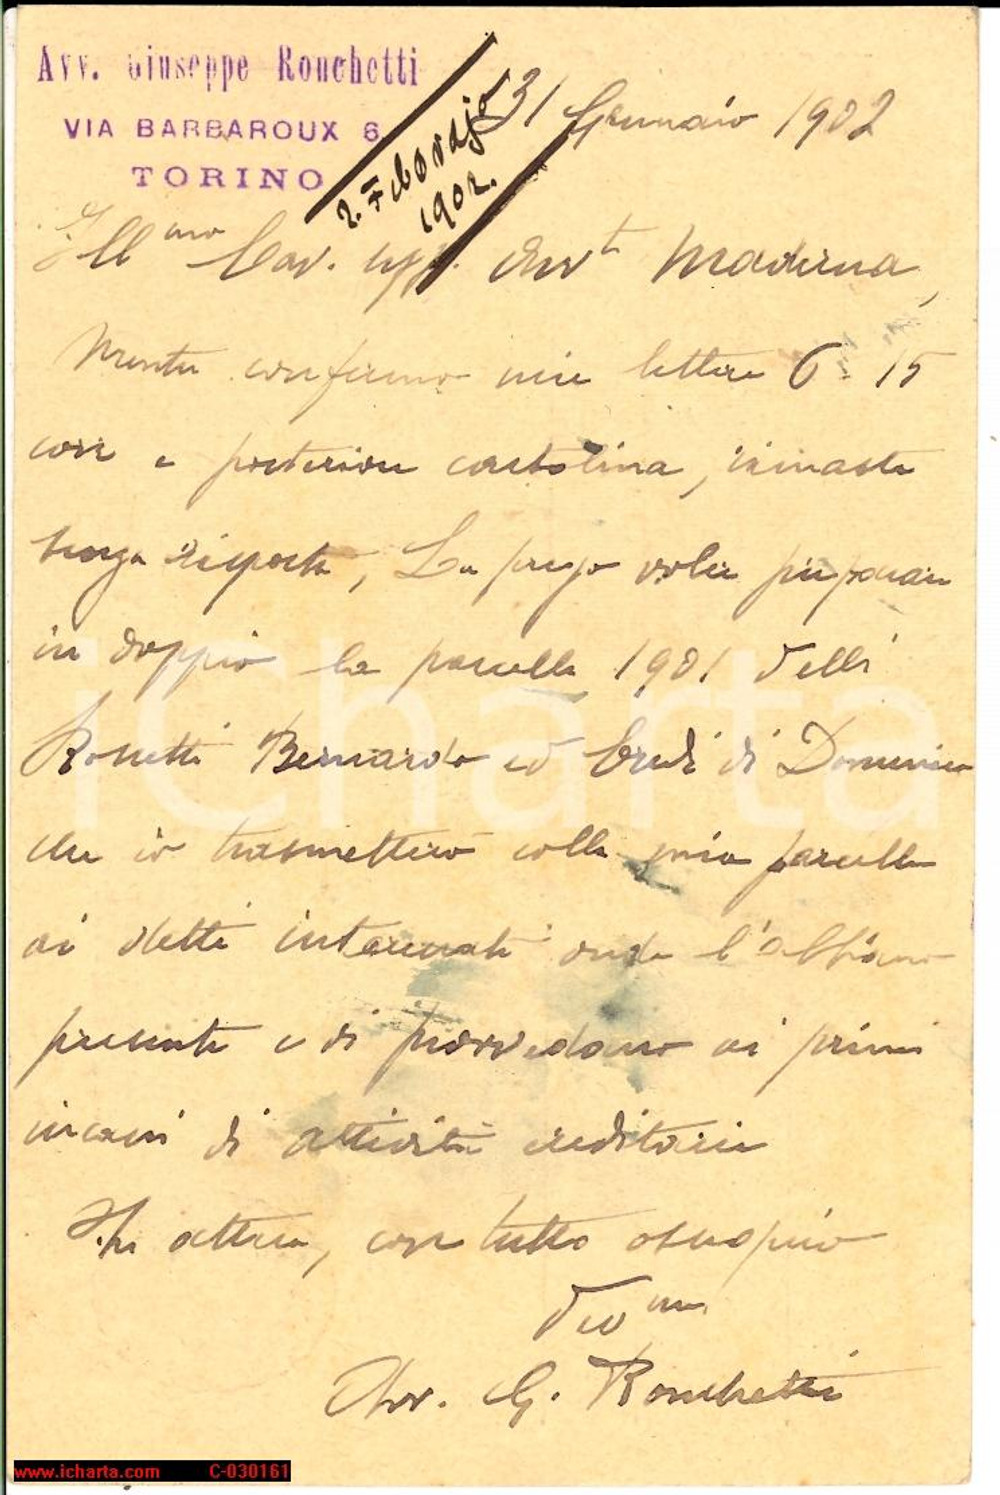 Avv. Giuseppe Ronchetti
VIA BARBAROUX 6
TORINO
31 Gennaio 1902
2. Febbrajo
1902.
Ill^mo Cav. uff. Avv^to Maderna,
Mentre confermo mie lettere 6 - 15
corr e posteriore cartolina, rimaste
senza risposta, La prego voler preparare
in doppio la parcella 1901 delli
Rossetti Bernardo ed Eredi di Domenico
che io trasmetterò colla mia parcella
ai detti interessati onde l'abbiano
presente e di provvedano ai primi
incassi di attività ereditarie
In attesa, con tutto ossequio
Dev^mo
Avv. G. Ronchetti
iCharta
www.icharta.com C-030161